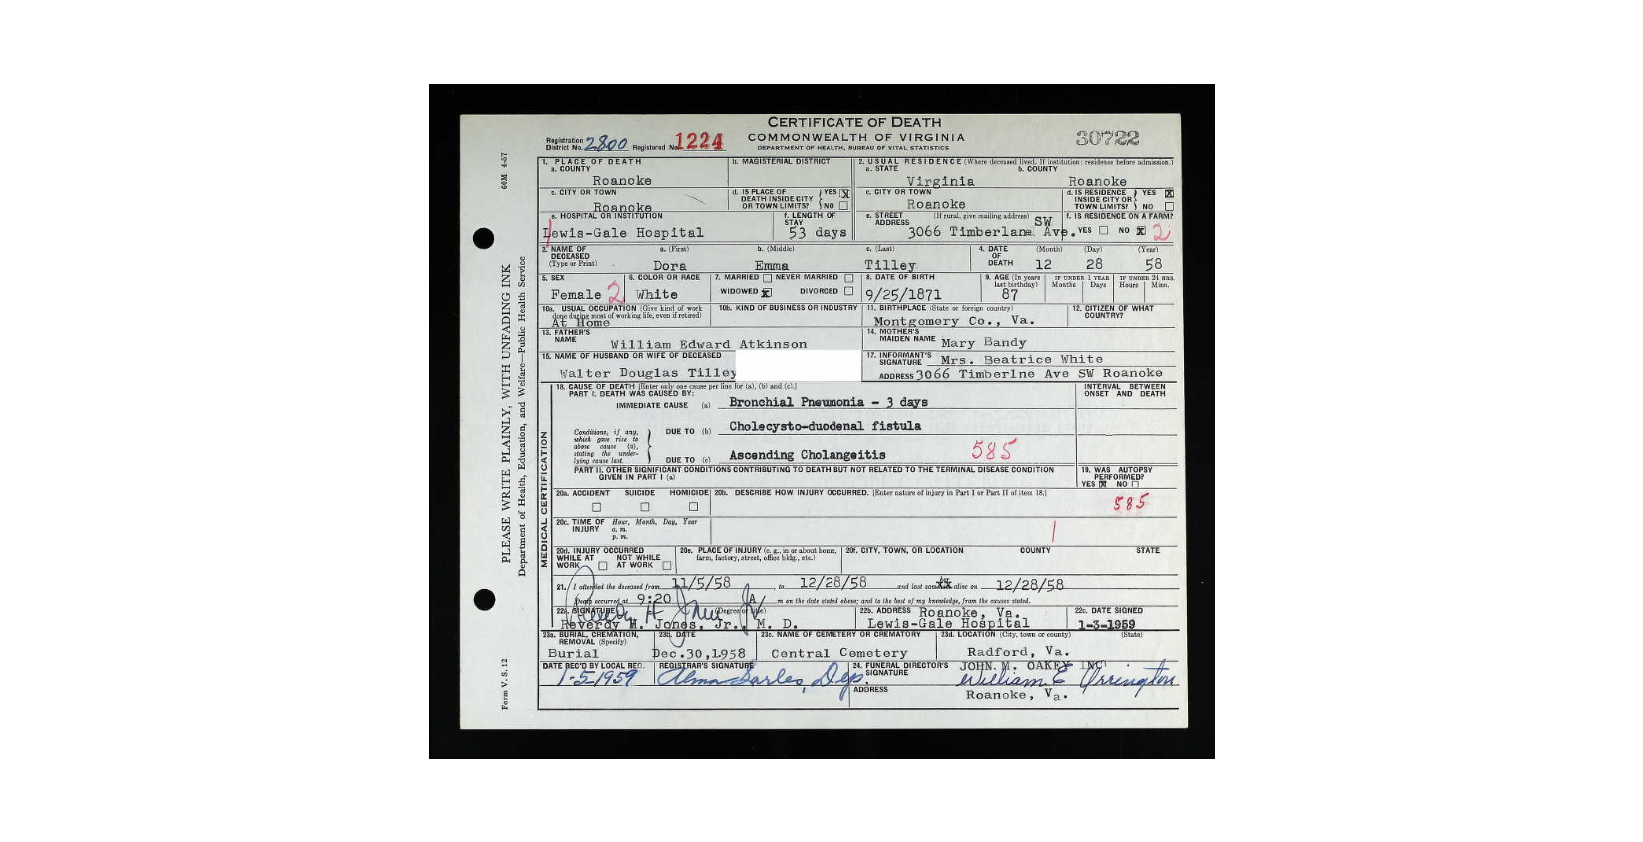 CERTIFICATE OF DEATH
COMMONWEALTH OF VIRGINIA
DEPARTMENT OF HEALTH, BUREAU OF VITAL STATISTICS
Registration District No. 2800 Registered No. 1224
30722
60M 4-57
PLEASE WRITE PLAINLY, WITH UNFADING INK
Department of Health, Education, and Welfare—Public Health Service
Form V. S. 12
1. PLACE OF DEATH
a. COUNTY
Roanoke
b. MAGISTERIAL DISTRICT
2. USUAL RESIDENCE (Where deceased lived. If institution: residence before admission.)
a. STATE
Virginia
b. COUNTY
Roanoke
c. CITY OR TOWN
Roanoke
d. IS PLACE OF DEATH INSIDE CITY OR TOWN LIMITS? YES X NO
c. CITY OR TOWN
Roanoke
d. IS RESIDENCE INSIDE CITY OR TOWN LIMITS? YES X NO
e. HOSPITAL OR INSTITUTION
Lewis-Gale Hospital
f. LENGTH OF STAY
53 days
e. STREET ADDRESS (If rural, give mailing address)
SW
3066 Timberlane Ave.
f. IS RESIDENCE ON A FARM?
YES NO X 2
3. NAME OF DECEASED (Type or Print)
a. (First)
Dora
b. (Middle)
Emma
c. (Last)
Tilley
4. DATE OF DEATH
(Month) (Day) (Year)
12 28 58
5. SEX
Female 2
6. COLOR OR RACE
White
7. MARRIED NEVER MARRIED
WIDOWED X DIVORCED
8. DATE OF BIRTH
9/25/1871
9. AGE (In years last birthday)
87
IF UNDER 1 YEAR
Months Days
IF UNDER 24 HRS.
Hours Min.
10a. USUAL OCCUPATION (Give kind of work done during most of working life, even if retired)
At Home
10b. KIND OF BUSINESS OR INDUSTRY
11. BIRTHPLACE (State or foreign country)
Montgomery Co., Va.
12. CITIZEN OF WHAT COUNTRY?
13. FATHER'S NAME
William Edward Atkinson
14. MOTHER'S MAIDEN NAME Mary Bandy
15. NAME OF HUSBAND OR WIFE OF DECEASED
Walter Douglas Tilley
17. INFORMANT'S SIGNATURE Mrs. Beatrice White
ADDRESS 3066 Timberlne Ave SW Roanoke
MEDICAL CERTIFICATION
18. CAUSE OF DEATH [Enter only one cause per line for (a), (b) and (c).]
PART I. DEATH WAS CAUSED BY:
INTERVAL BETWEEN ONSET AND DEATH
IMMEDIATE CAUSE (a) Bronchial Pneumonia - 3 days
Conditions, if any, which gave rise to above cause (a), stating the underlying cause last.
DUE TO (b) Cholecysto-duodenal fistula
DUE TO (c) Ascending Cholangeitis 585
PART II. OTHER SIGNIFICANT CONDITIONS CONTRIBUTING TO DEATH BUT NOT RELATED TO THE TERMINAL DISEASE CONDITION GIVEN IN PART I (a)
19. WAS AUTOPSY PERFORMED?
YES X NO
20a. ACCIDENT SUICIDE HOMICIDE
20b. DESCRIBE HOW INJURY OCCURRED. [Enter nature of injury in Part I or Part II of item 18.]
585
20c. TIME OF INJURY Hour, Month, Day, Year
a. m.
p. m.
20d. INJURY OCCURRED
WHILE AT WORK NOT WHILE AT WORK
20e. PLACE OF INJURY (e. g., in or about home, farm, factory, street, office bldg., etc.)
20f. CITY, TOWN, OR LOCATION COUNTY STATE
21. I attended the deceased from 11/5/58 , to 12/28/58 and last saw xx alive on 12/28/58
Death occurred at 9:20 A m on the date stated above; and to the best of my knowledge, from the causes stated.
22a. SIGNATURE (Degree or title)
Reverdy H. Jones, Jr., M. D.
22b. ADDRESS Roanoke, Va.
Lewis-Gale Hospital
22c. DATE SIGNED
1-3-1959
23a. BURIAL, CREMATION, REMOVAL (Specify)
Burial
23b. DATE
Dec.30,1958
23c. NAME OF CEMETERY OR CREMATORY
Central Cemetery
23d. LOCATION (City, town or county) (State)
Radford, Va.
DATE REC'D BY LOCAL REG.
1-5-1959
REGISTRAR'S SIGNATURE
24. FUNERAL DIRECTOR'S SIGNATURE
JOHN. M. OAKEY INC
William E Arrington
ADDRESS
Roanoke, Va.